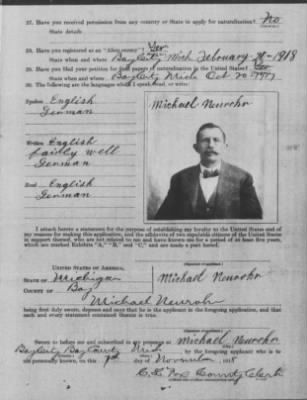 27. Have you received permission from any country or State to apply for naturalization? No
State details
28. Have you registered as an "Alien enemy"? Yes
State when and where Baycity Mich February 1918
29. Have you that your petition for final papers of naturalization in the United States? Yes
State when and where Baycity Mich Oct 20
30. The following are the languages which I speak, read, or write:
Spoken English
German
Michael Neurohr
Written English
fairly well
German
Read English
German
I attach hereto a statement for the purpose of establishing my loyalty to the United States and of
my reasons for making this application, and the affidavits of two reputable citizens of the United States
in support thereof, who are not related to me and have known me for a period of at least five years,
which are marked Exhibits "A," "B," and "C," and are made a part hereof.
UNITED STATES OF AMERICA,
STATE OF Michigan
COUNTY OF Bay
Michael Neurohr
Michael Neurohr
being first duly sworn, deposes and says that he is the applicant in the foregoing application, and that
each and every statement contained therein is true.
Michael Neurohr
Sworn to before me and subscribed in my presence by
Baycity Bay County Mich by the foregoing applicant who is to
me personally known, on this day of November, 1918
County Clerk